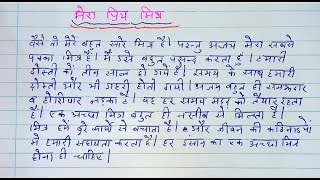 मेरा प्रिय मित्र
वैसे तो मेरे बहुत सारे मित्र हैं। परन्तु अजय मेरा सबसे
पक्का मित्र है। मैं उसे बहुत पसन्द करता हूँ। हमारी
दोस्ती को तीन साल हो गये हैं। समय के साथ हमारी
दोस्ती और भी गहरी होती गयी। अजय बहुत ही समझदार
व होशियार लड़का है। वह हर समय मदद को तैयार रहता
है। एक अच्छा मित्र बहुत ही नसीब से मिलता है।
मित्र हमें बुरे कार्यो से बचाता है। और जीवन की कठिनाइयों
में हमारी सहायता करता है। हर इंसान का एक अच्छा मित्र
होना ही चाहिए।